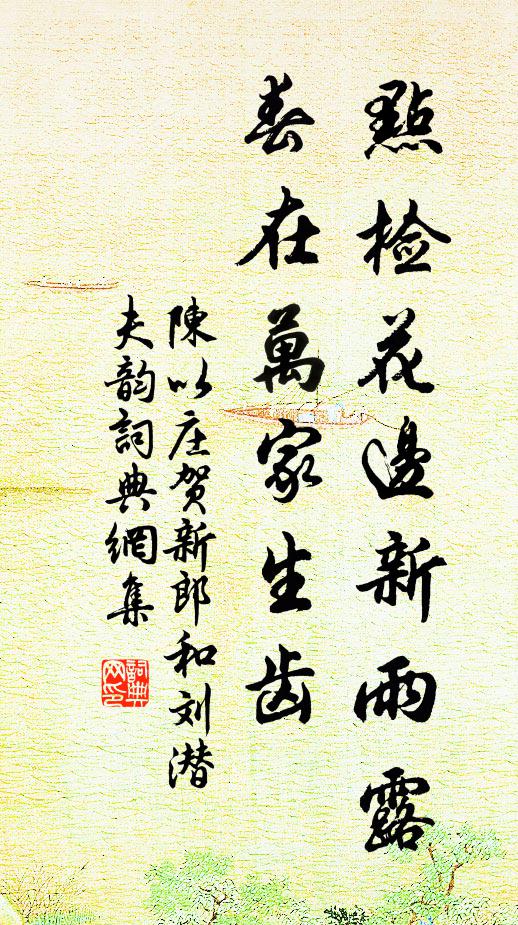 點檢花邊新雨露
春在萬家生齿
陳以庄贺新郎和刘潜
夫韵詞典網集
詞典
网印